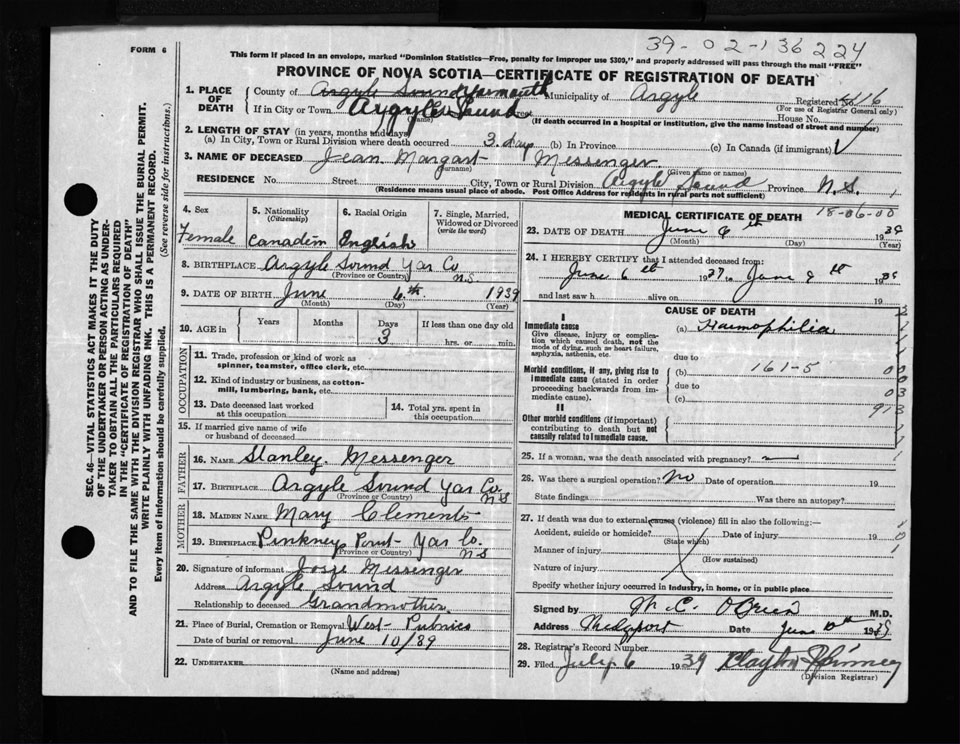 39-02-136224
FORM 6
This form if placed in an envelope, marked "Dominion Statistics—Free, penalty for improper use $300," and properly addressed will pass through the mail "FREE"
PROVINCE OF NOVA SCOTIA—CERTIFICATE OF REGISTRATION OF DEATH
1. PLACE OF DEATH
County of Argyle Sound Yarmouth Municipality of Argyle Registered No. 416
(For use of Registrar General only)
If in City or Town Argyle Sound Street House No.
(Name) (If death occurred in a hospital or institution, give the name instead of street and number)
2. LENGTH OF STAY (in years, months and days)
(a) In City, Town or Rural Division where death occurred 3 days (b) In Province (c) In Canada (if immigrant)
3. NAME OF DECEASED Jean Margart Messenger
(Surname) (Given name or names)
RESIDENCE No. Street City, Town or Rural Division Argyle Sound Province N.S.
(Residence means usual place of abode. Post Office Address for residents in rural parts not sufficient)
4. Sex
Female
5. Nationality
(Citizenship)
Canadien
6. Racial Origin
English
7. Single, Married, Widowed or Divorced
(write the word)
8. BIRTHPLACE Argyle Sound Yar Co N.S.
(Province or Country)
9. DATE OF BIRTH June 6th 1939
(Month) (Day) (Year)
10. AGE in
Years Months Days If less than one day old
3 hrs. or min.
OCCUPATION
11. Trade, profession or kind of work as
spinner, teamster, office clerk, etc.
12. Kind of industry or business, as cotton-
mill, lumbering, bank, etc.
13. Date deceased last worked
at this occupation
14. Total yrs. spent in
this occupation
15. If married give name of wife
or husband of deceased
FATHER
16. NAME Stanley Messenger
17. BIRTHPLACE Argyle Sound Yar Co. N S
(Province or Country)
MOTHER
18. MAIDEN NAME Mary Clements
19. BIRTHPLACE Pinkney Point Yar Co. N S
(Province or Country)
20. Signature of informant Josie Messenger
Address Argyle Sound
Relationship to deceased Grandmother
21. Place of Burial, Cremation or Removal West Pubnico
Date of burial or removal June 10/39
22. UNDERTAKER
(Name and address)
MEDICAL CERTIFICATE OF DEATH
18-06-00
23. DATE OF DEATH June 8th 1939
(Month) (Day) (Year)
24. I HEREBY CERTIFY that I attended deceased from:
June 6th 1939 to June 8th 1939
and last saw h alive on 19
CAUSE OF DEATH
I
Immediate cause
Give disease, injury or complication which caused death, not the mode of dying, such as heart failure, asphyxia, asthenia, etc.
(a) Haemophilia
due to
Morbid conditions, if any, giving rise to immediate cause (stated in order proceeding backwards from immediate cause).
(b) 161-5
due to
(c)
II
Other morbid conditions (if important) contributing to death but not causally related to immediate cause.
25. If a woman, was the death associated with pregnancy?
26. Was there a surgical operation? No Date of operation 19
State findings Was there an autopsy?
27. If death was due to external causes (violence) fill in also the following:—
Accident, suicide or homicide? Date of injury 19
(State which)
Manner of injury
(How sustained)
Nature of injury
Specify whether injury occurred in industry, in home, or in public place
Signed by M C O'Brien M.D.
Address Date June 10th 1939
28. Registrar's Record Number
29. Filed July 6 1939 Clayton
(Division Registrar)
SEC. 46—VITAL STATISTICS ACT MAKES IT THE DUTY
OF THE UNDERTAKER OR PERSON ACTING AS UNDER-
TAKER TO OBTAIN ALL THE PARTICULARS REQUIRED
IN THE "CERTIFICATE OF REGISTRATION OF DEATH"
AND TO FILE THE SAME WITH THE DIVISION REGISTRAR WHO SHALL ISSUE THE BURIAL PERMIT.
WRITE PLAINLY WITH UNFADING INK. THIS IS A PERMANENT RECORD.
Every item of information should be carefully supplied. (See reverse side for instructions.)